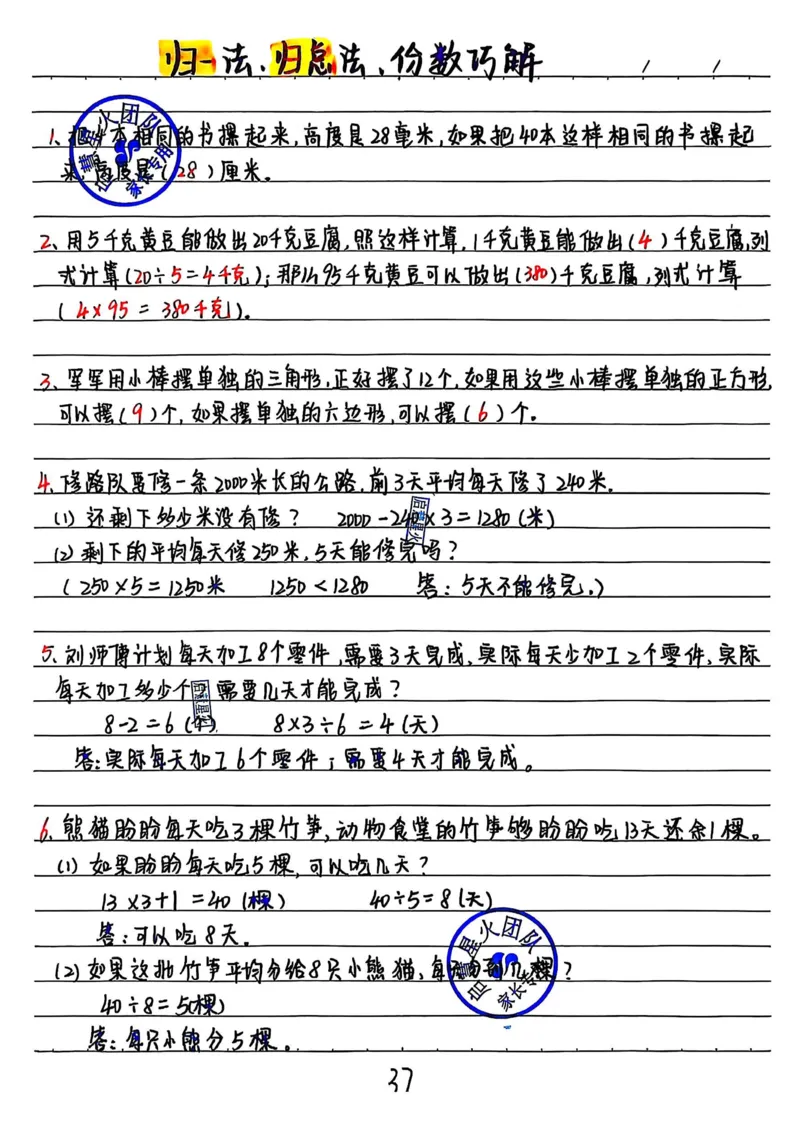 归一法、归总法、份数巧解
1、把4本相同的书摞起来,高度是28毫米,如果把40本这样相同的书摞起
来,高度是(28)厘米。
2、用5千克黄豆能做出20千克豆腐,照这样计算,1千克黄豆能做出(4)千克豆腐,列
式计算(20÷5=4千克);那么95千克黄豆可以做出(380)千克豆腐,列式计算
(4×95=380千克)。
3、军军用小棒摆单独的三角形,正好摆了12个,如果用这些小棒摆单独的正方形,
可以摆(9)个,如果摆单独的六边形,可以摆(6)个。
4、修路队要修一条2000米长的公路,前3天平均每天修了240米.
(1)还剩下多少米没有修? 2000-240×3=1280(米)
(2)剩下的平均每天修250米,5天能修完吗?
(250×5=1250米 1250<1280 答:5天不能修完。)
5、刘师傅计划每天加工8个零件,需要3天完成,实际每天少加工2个零件,实际
每天加工多少个 需要几天才能完成?
8-2=6(个) 8×3÷6=4(天)
答:实际每天加工6个零件;需要4天才能完成。
6、熊猫盼盼每天吃3棵竹笋,动物食堂的竹笋够盼盼吃13天还余1棵。
(1)如果盼盼每天吃5棵,可以吃几天?
13×3+1=40(棵) 40÷5=8(天)
答:可以吃8天.
(2)如果这批竹笋平均分给8只小熊猫,每只分到几棵?
40÷8=5(棵)
答:每只小熊分5棵。
启蒙星火团队
家长专用
37